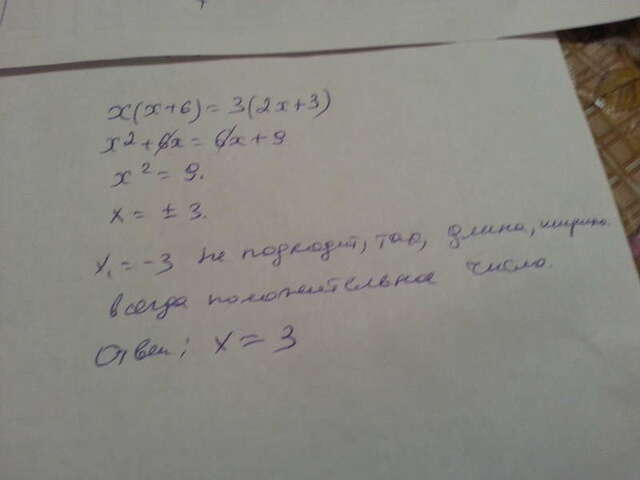 x(x+6)=3(2x+3)
x²+6x=6x+9
x²=9.
x=±3.
x₁=-3 не подходит, т.к., длина, ширина.
всегда положительное число.
Ответ; x=3